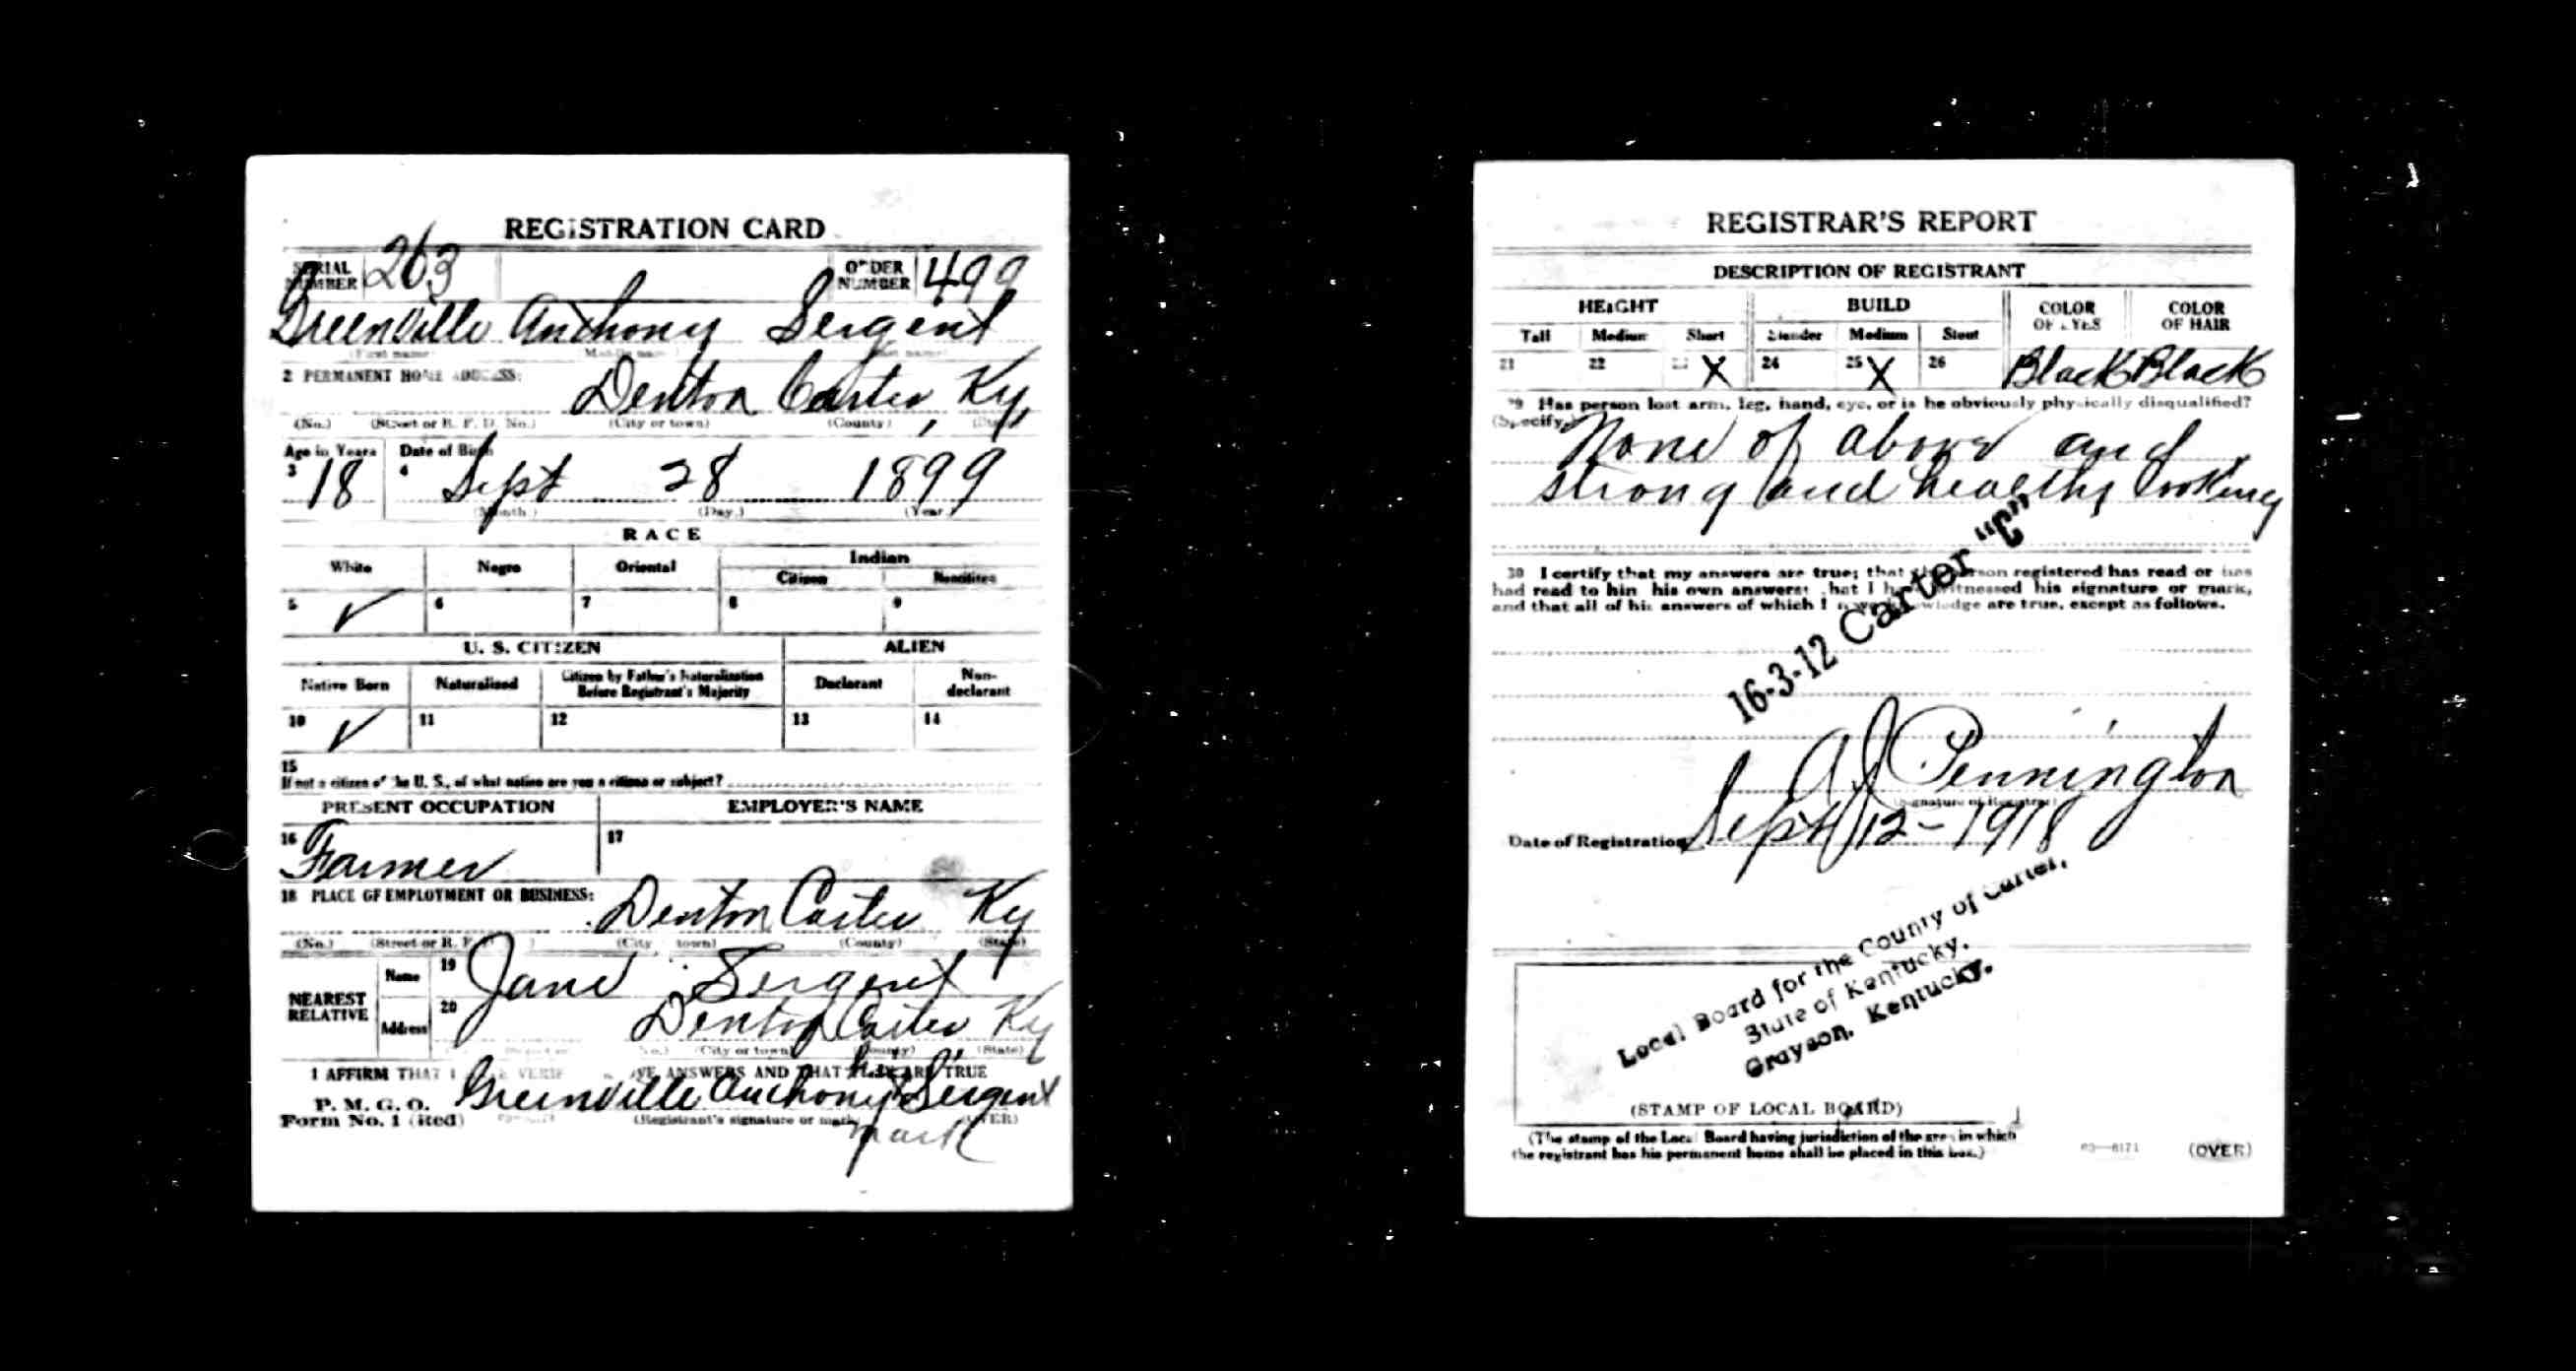 REGISTRATION CARD
SERIAL NUMBER 263 ORDER NUMBER 499
Greenville Anthony Sergent
(First name) (Middle name) (Last name)
2 PERMANENT HOME ADDRESS:
Denton Carter, Ky,
(No.) (Street or R. F. D. No.) (City or town) (County) (State)
Age in Years Date of Birth
3 18 4 Sept 28 1899
(Month.) (Day.) (Year.)
RACE
White Negro Oriental Indian
Citizen Noncitizen
5 ✓ 6 7 8 9
U. S. CITIZEN ALIEN
Native Born Naturalized Citizen by Father's Naturalization Before Registrant's Majority Declarant Non-declarant
10 ✓ 11 12 13 14
15
If not a citizen of the U. S., of what nation are you a citizen or subject?
PRESENT OCCUPATION EMPLOYER'S NAME
16 Farmer 17
18 PLACE OF EMPLOYMENT OR BUSINESS:
Denton, Carter Ky
(No.) (Street or R. F. ) (City town) (County) (State)
NEAREST RELATIVE Name 19 Jane Sergent
Address 20 Denton Carter Ky
(City or town) (County) (State)
I AFFIRM THAT I VERIF VE ANSWERS AND THAT THEY ARE TRUE
his
P. M. G. O.
Form No. 1 (Red) Greenville Anthony x Sergent
(Registrant's signature or mark) (OVER)
mark
REGISTRAR'S REPORT
DESCRIPTION OF REGISTRANT
HEIGHT BUILD COLOR OF EYES COLOR OF HAIR
Tall Medium Short Slender Medium Stout
21 22 X 24 25 X 26 Black Black
29 Has person lost arm, leg, hand, eye, or is he obviously physically disqualified?
(Specify.) None of above and
strong and healthy looking
30 I certify that my answers are true; that the person registered has read or has
had read to him his own answers; that I have witnessed his signature or mark,
and that all of his answers of which I have knowledge are true, except as follows.
16-3-12 Carter "C"
A J Pennington
(Signature of Registrar)
Date of Registration Sept 12-1918
Local Board for the County of Carter,
State of Kentucky,
Grayson, Kentucky.
(STAMP OF LOCAL BOARD)
(The stamp of the Local Board having jurisdiction of the area in which
the registrant has his permanent home shall be placed in this box.)
03—6171 (OVER)